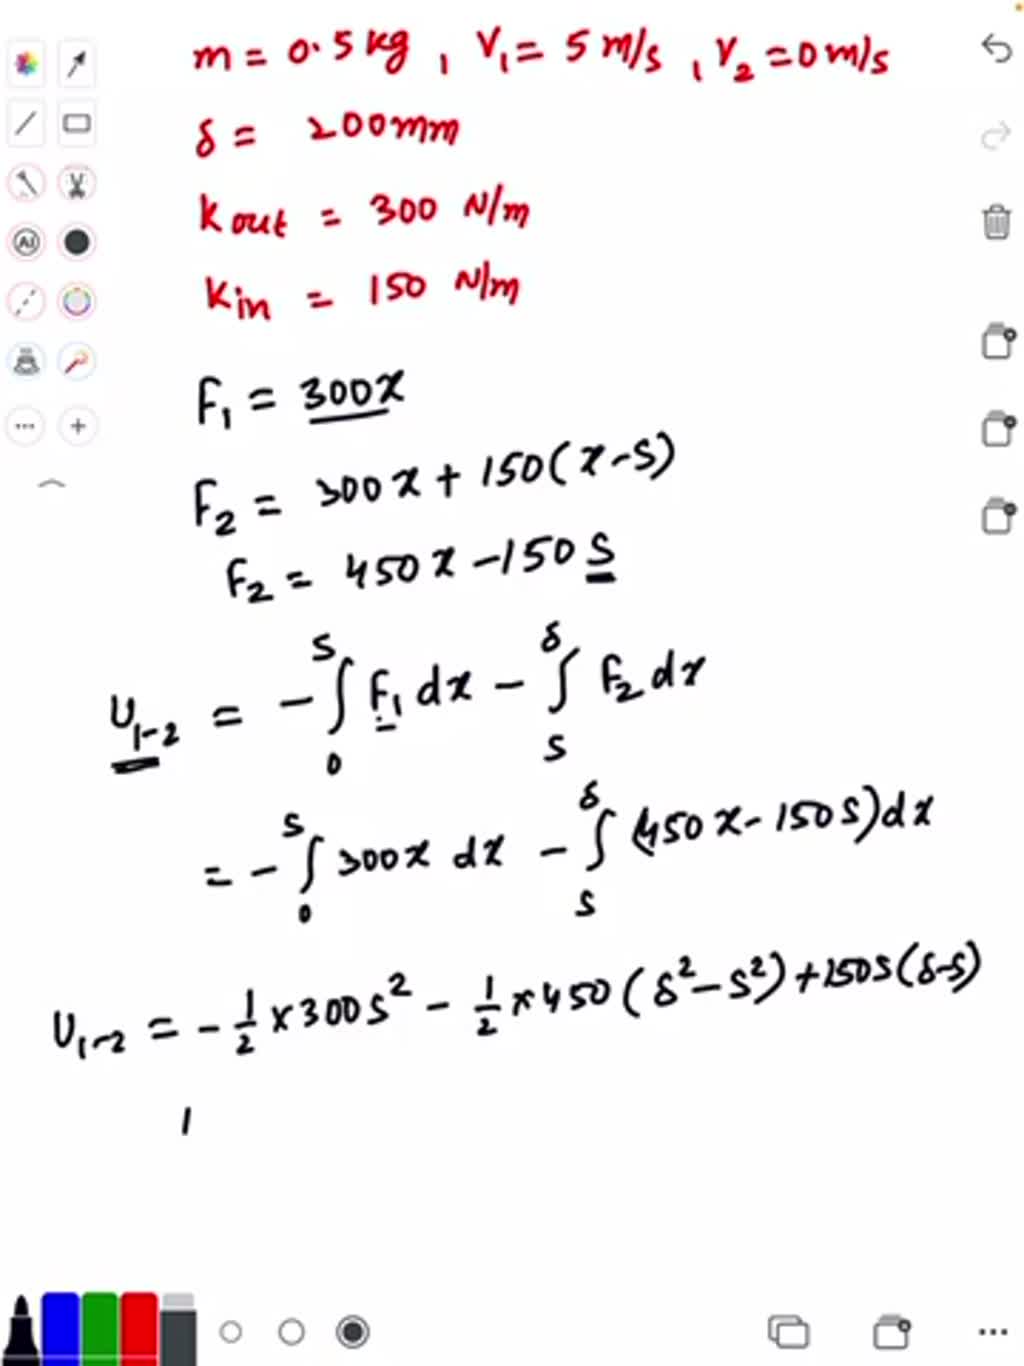 m = 0.5 kg , V₁ = 5 m/s , V₂ = 0 m/s
δ = 200mm
Kout = 300 N/m
Kin = 150 N/m
F₁ = 300x
F₂ = 300x + 150(x-s)
F₂ = 450x - 150s
U₁₋₂ = -∫₀ˢ F₁ dx - ∫ₛᵟ F₂ dx
= -∫₀ˢ 300x dx - ∫ₛᵟ (450x - 150s)dx
U₁₋₂ = -1/2 × 300s² - 1/2 × 450(δ² - s²) + 150s(δ-s)
AI